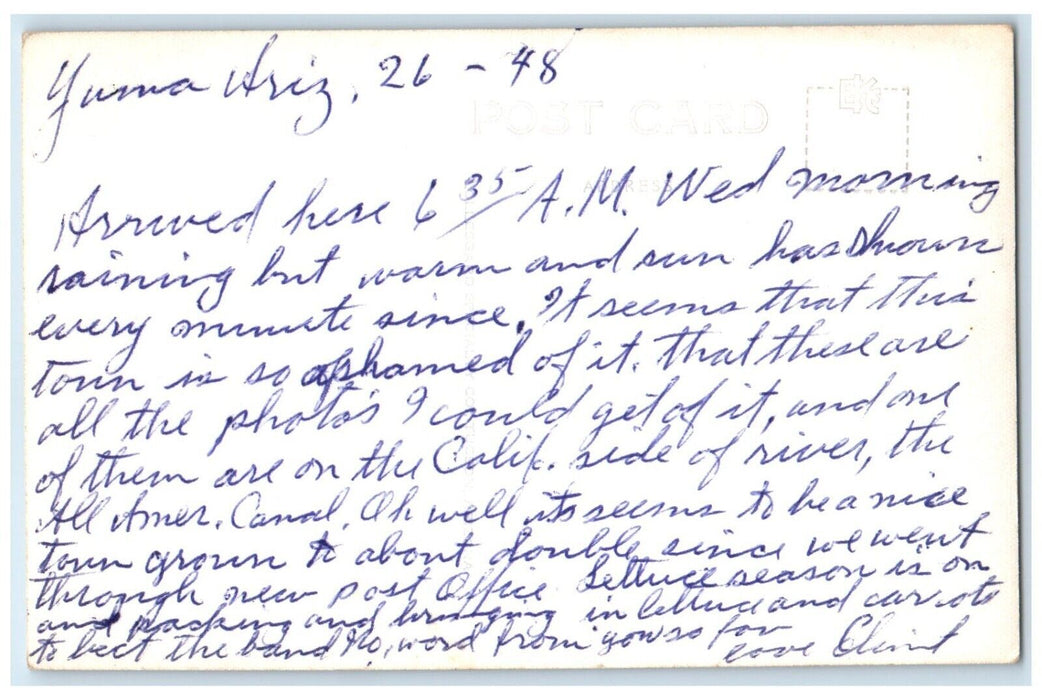 Yuma Ariz, 26 - 48
POST CARD
ADDRESS
Arrived here 6 35 A.M. Wed morning
raining but warm and sun has shown
every minute since. It seems that this
town is so ashamed of it. that these are
all the photo's I could get of it, and one
of them are on the Calif. side of river, the
All Amer. Canal. Oh well its seems to be a nice
town grown to about double since we went
through new post office. Lettuce season is on
and packing and bringing in lettuce and carrots
to beet the band No, word from you so far
Love Clint